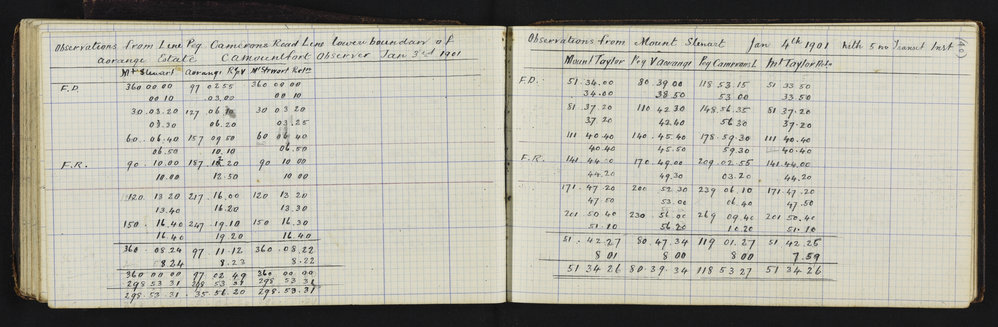 Observations from Line Peg Camerons Road Line lower boundary of
Aorangi Estate C A Mountfort Observer Jan 3rd 1901
Mt Stewart Aorangi Peg V Mt Stewart Retn
F.D. 360 00 00 97 02 55 360 00 00
00 10 03.00 00 10
30.03.20 127 06 30 03 20
03.30 06.20 03.25
60.06.40 157 09 50 60 06 40
06.50 10.10 06.50
F.R. 90.10.00 187 20 90 10 00
10.00 12.50 10 00
120 13 20 217.16.00 120 13 20
13.40 16.20 13.30
150.16.40 247.19.10 150 16.30
16 40 19.20 16.40
360.08.24 97.11.12 360.08.22
8 24 8.23 8.22
360 00 00 97 02 49 360 00.00
298 53 31 298 53 31 298 53 31
298.53.31 35 56.20 298.53.31
Observations from Mount Stewart Jan 4th 1901 With 5 no Transit Inst
(40)
Mount Taylor Peg V Aorangi Peg Camerons L Mt Taylor Retn
F.D. 51.34.00 80.39 00 118 53.15 51 33 50
.34.00 38 50 53 00 33.50
81.37.20 110 42 30 148.56.35 81 37.20
37 20 42.40 56 30 37.20
111 40.40 140.45.40 178.59.30 111 40.40
40.40 45.50 59.30 40.40
F.R. 141 44.00 170.49.00 209.02 55 141 44.00
44.20 49.30 03.20 44.20
171.47.20 200 52.30 239 06.10 171.47.20
47 50 53.00 06.40 47.50
201 50 40 230 56.00 269 09.40 201 50.40
51.10 56.20 10.20 51.10
51.42.27 80 47.34 119 01.27 51 42.25
8 01 8 00 8 00 7.59
51 34 26 80.39.34 118 53 27 51 34.26